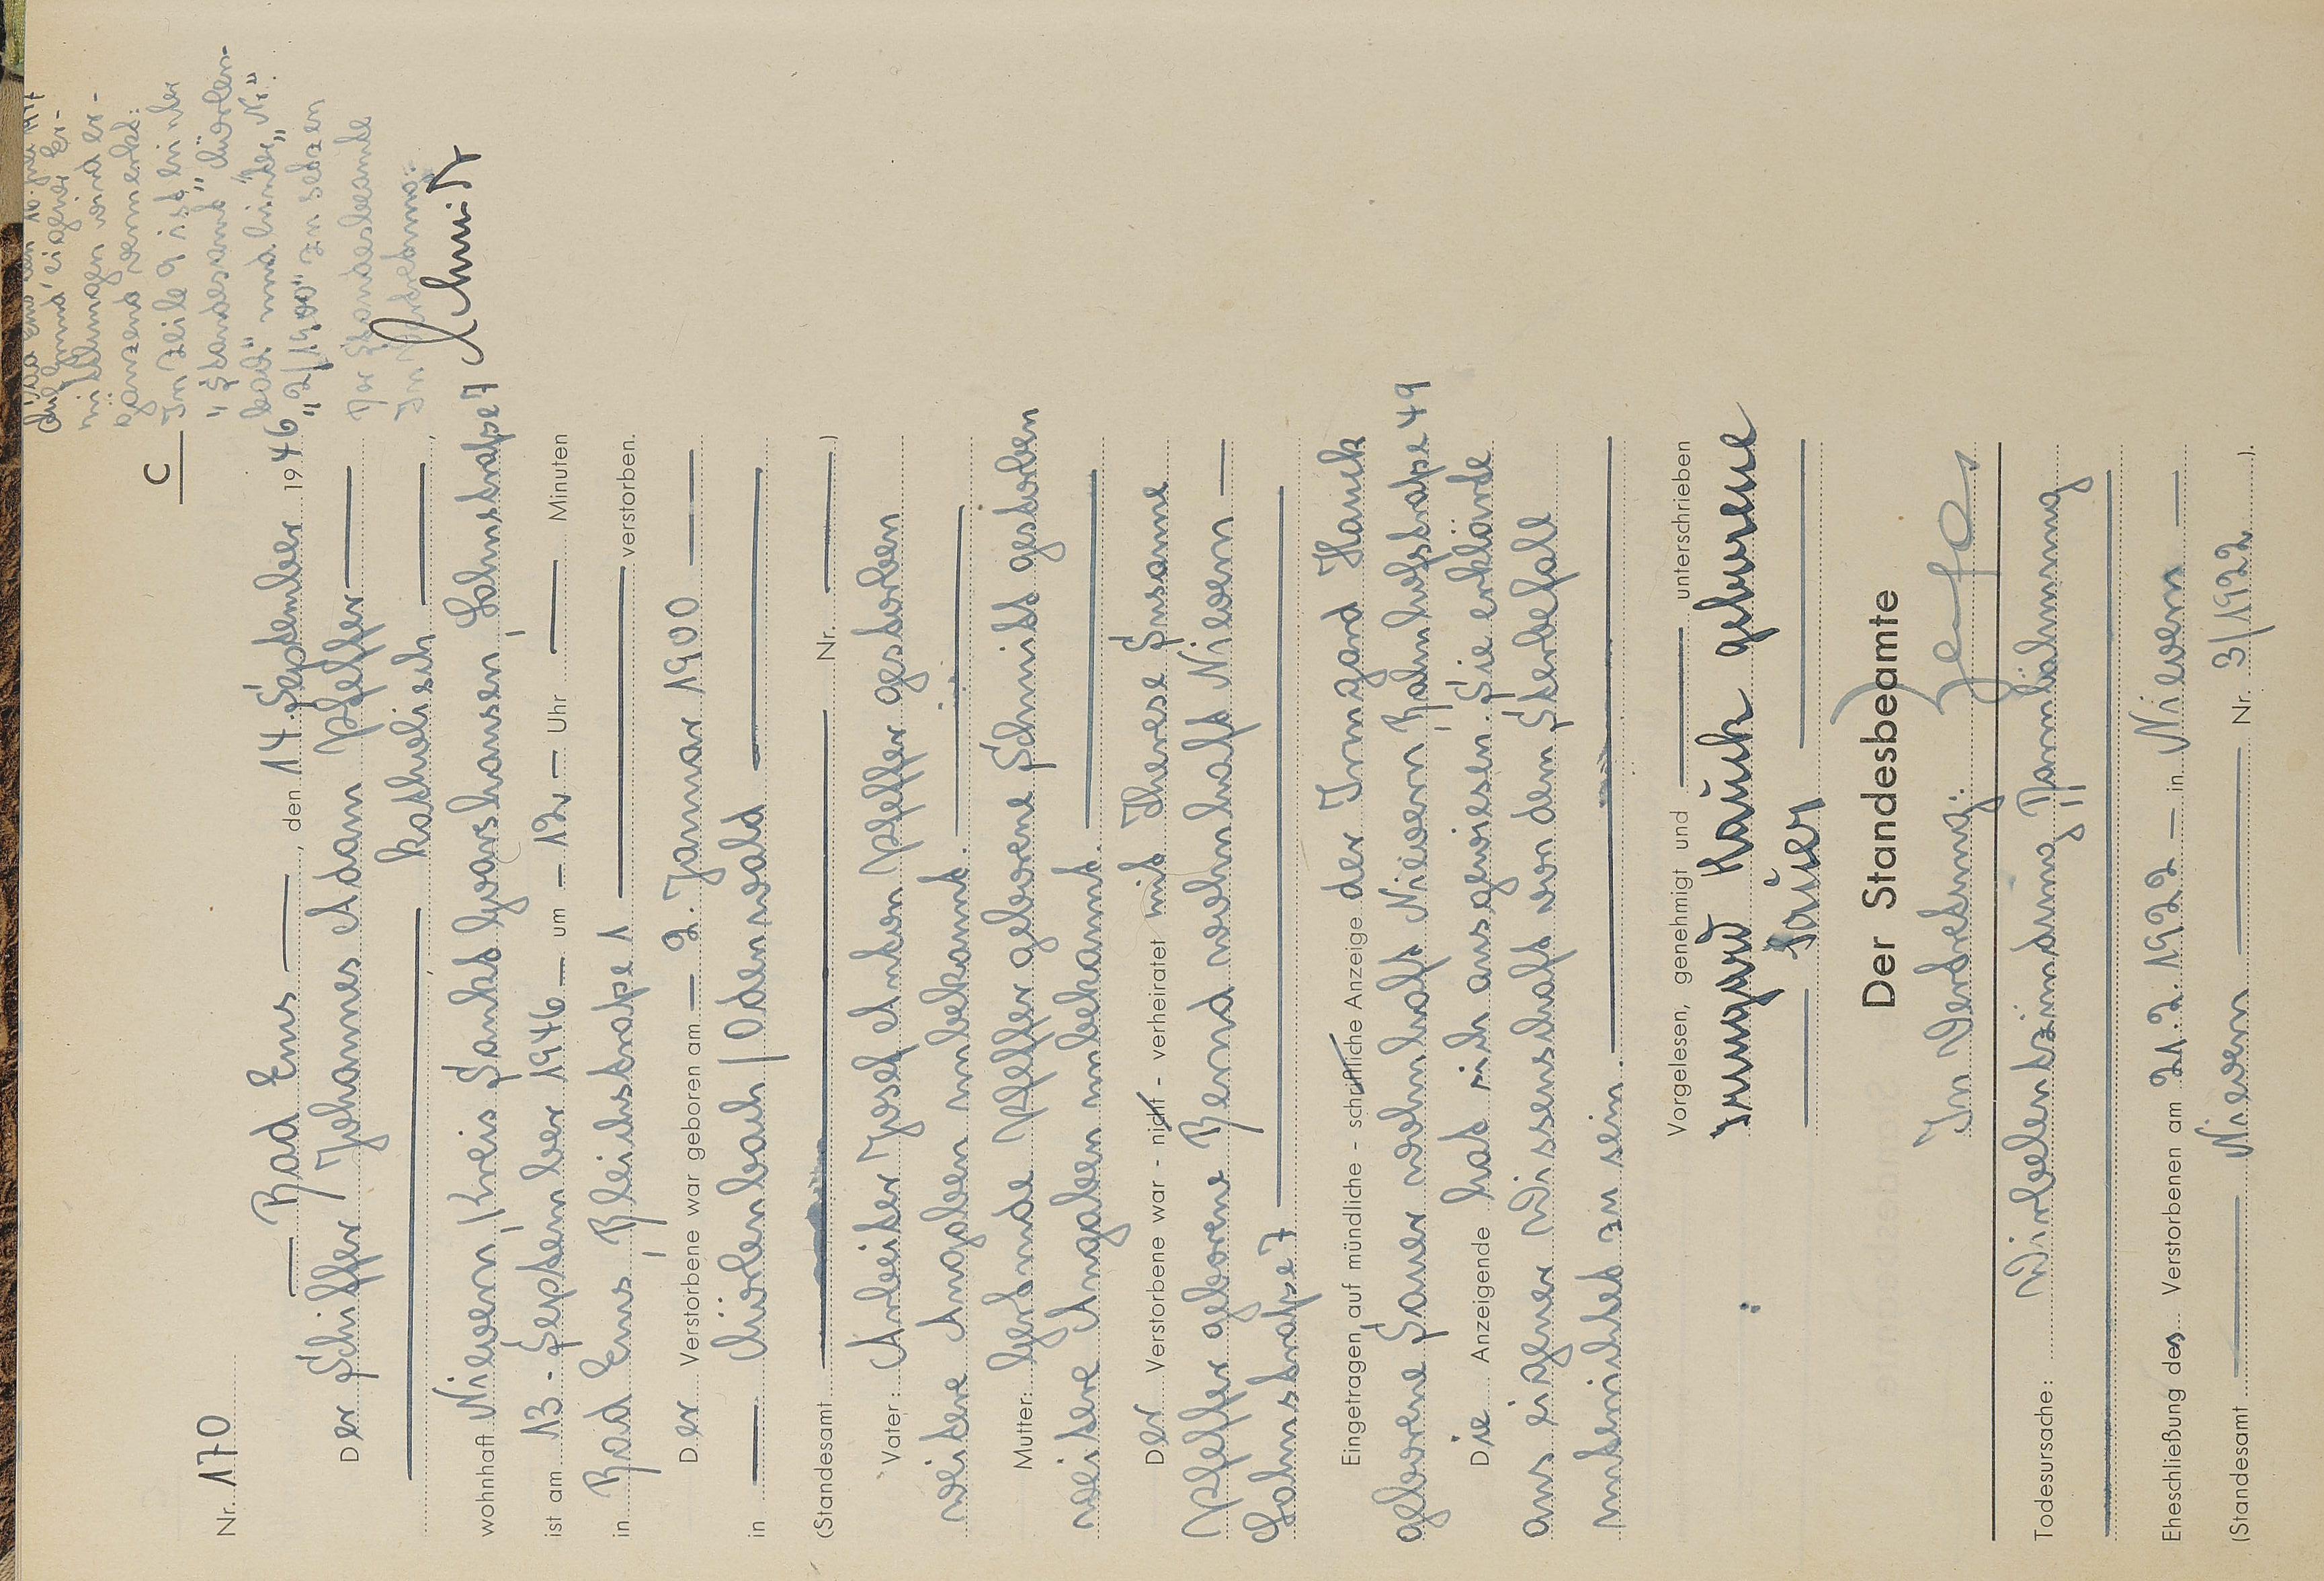 C
Nr. 170
Bad Ems, den 14. September 1946
Der Schiffer Johannes Adam Pfeffer
katholisch
wohnhaft Nievern, Kreis Sankt Goarshausen, Lahnstraße 7
ist am 13. September 1946 um 12 Uhr Minuten
in Bad Ems, Bleichstraße 1 verstorben.
Der Verstorbene war geboren am 2. Januar 1900
in Mörlenbach / Odenwald
(Standesamt Nr. )
Vater: Arbeiter Josef Anton Pfeffer gestorben
weitere Angaben unbekannt.
Mutter: Gertrude Pfeffer geborene Schmitt gestorben
weitere Angaben unbekannt.
Der Verstorbene war - nicht - verheiratet mit Therese Susanne
Pfeffer geborene Bernd wohnhaft Nievern
Lahnstraße 7
Eingetragen auf mündliche - schriftliche Anzeige der Irmgard Hauck
geborene Sauer wohnhaft Nievern, Bahnhofstraße 49
Die Anzeigende hat sich ausgewiesen. Sie erklärte
aus eigener Wissenschaft von dem Sterbefall
unterrichtet zu sein.
Vorgelesen, genehmigt und unterschrieben
Irmgard Hauck geborene
Sauer
Der Standesbeamte
In Vertretung:
Todesursache: Wirbelentzündung, Darmlähmung
Eheschließung des Verstorbenen am 21.2.1922 in Nievern
(Standesamt Nievern Nr. 3/1922 ).
Auf Grund eigener Er-
mittlungen wird er-
gänzend vermerkt:
In Zeile 9 ist hinter
"Standesamt" "Mörlen-
bach" und hinter "Nr."
"2/1900" zu setzen
Der Standesbeamte
In Vertretung:
Schmidt